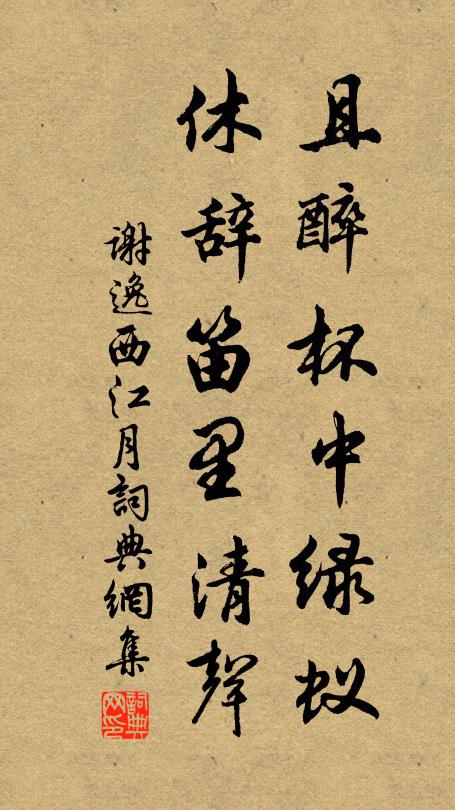 且醉杯中绿蚁
休辞笛里清聲
谢逸西江月詞典網集
詞典
网印